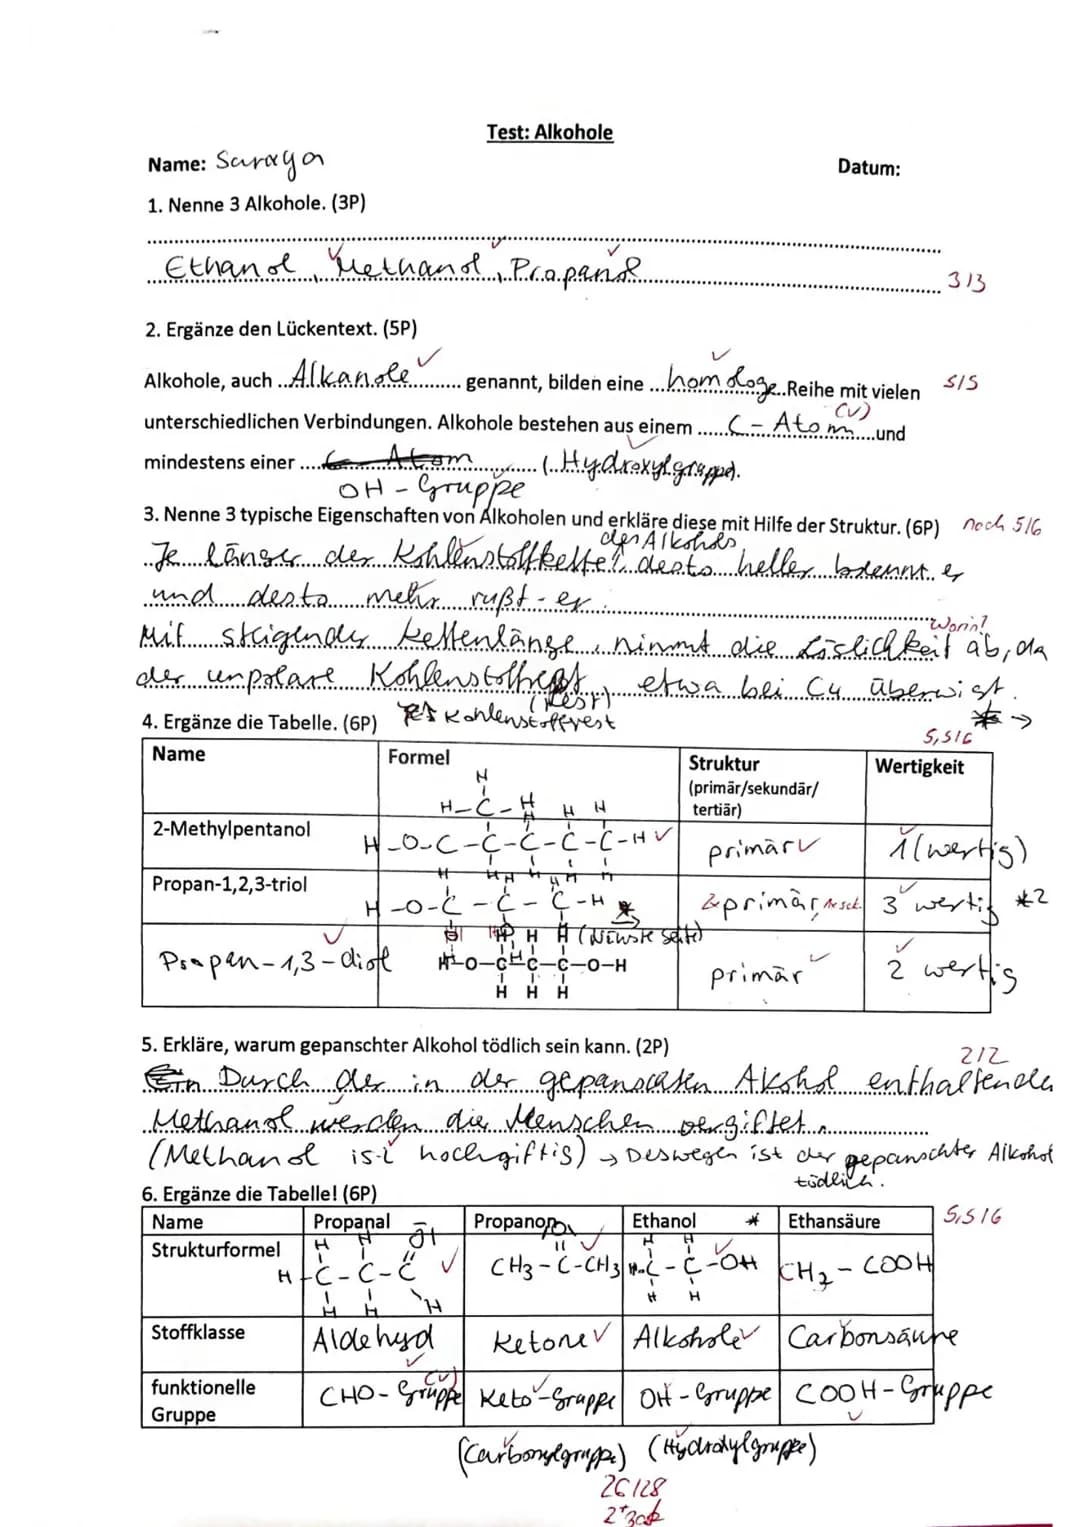 Test: Alkohole
Name: Saraya
Datum:
1. Nenne 3 Alkohole. (3P)
Ethanol, Methanol, Propanol
3/3
2. Ergänze den Lückentext. (5P)
Alkohole, auch Alkanole genannt, bilden eine homologe Reihe mit vielen 5/5
unterschiedlichen Verbindungen. Alkohole bestehen aus einem C-Atom und
mindestens einer (Hydroxylgruppe).
OH-Gruppe
3. Nenne 3 typische Eigenschaften von Alkoholen und erkläre diese mit Hilfe der Struktur. (6P) noch 5/6
des Alkohols
Je länger der Kohlenstoffkette, desto heller brennt er
und desto mehr rußt er.
Worin?
Mit steigender Kettenlänge, nimmt die Löslichkeit ab, da
der unpolare, etwa bei C4 überwigt.
(Rest)
Kohlenstoffrest
4. Ergänze die Tabelle. (6P)
5,5/6
Name Formel Struktur (primär/sekundär/ Wertigkeit
tertiär)
H
H-C-H H H
2-Methylpentanol H-O-C-C-C-C-C-H primär 1(wertig)
Propan-1,2,3-triol H-O-C-C-C-H primär 3 wertig *2
(Neuste Seite)
Propan-1,3-diol H-O-C-C-C-O-H primär 2 wertig
H H H
5. Erkläre, warum gepanschter Alkohol tödlich sein kann. (2P)
2/2
Durch der in der gepanschten Akohol enthaltende
Methanol werden die Menschen vergiftet.
(Methanol ist hochgiftig) → Deswegen ist der gepanschter Alkohol
tödlich.
6. Ergänze die Tabelle! (6P)
5,5/6
Name Propanal Propanon Ethanol * Ethansäure
Strukturformel H-C-C-C CH3-C-CH3 H-C-C-OH CH2-COOH
Stoffklasse Aldehyd Ketone Alkohole Carbonsäure
funktionelle CHO-Gruppe Keto-Gruppe OH-Gruppe COOH-Gruppe
Gruppe
(Carbonylgruppe) (Hydroxylgruppe)
26/28